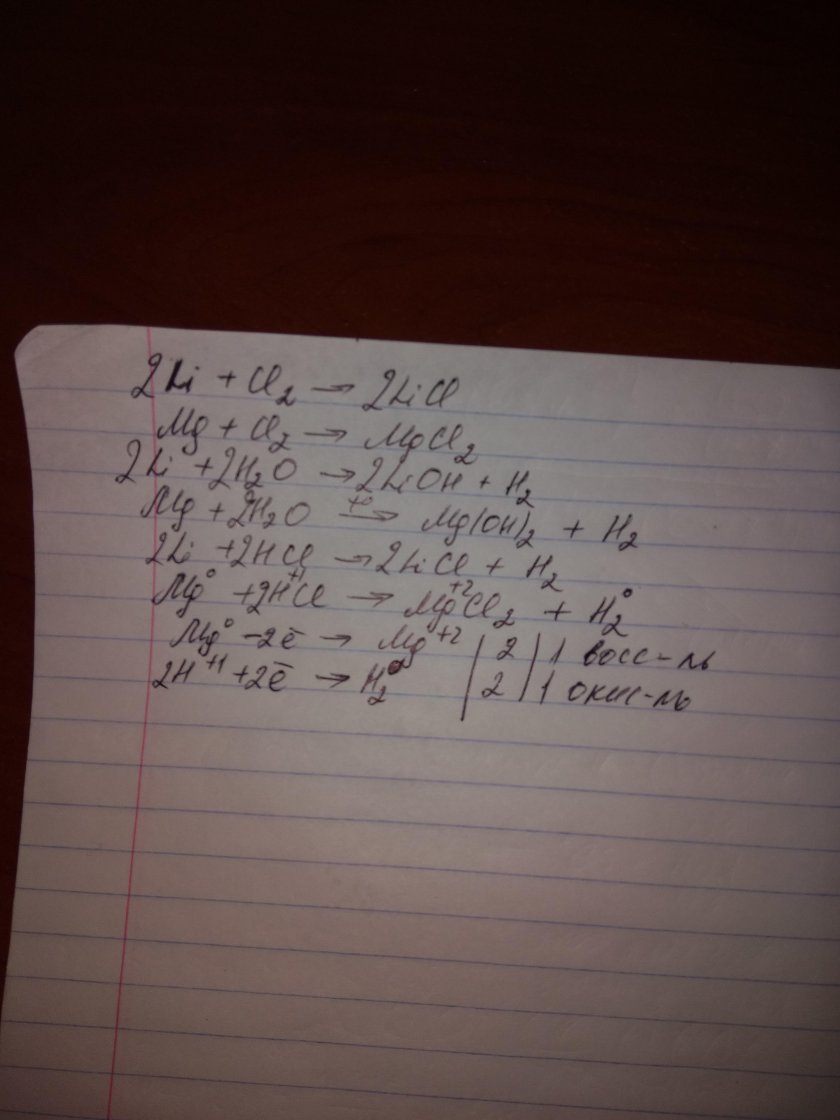 2Li + Cl₂ → 2LiCl
Mg + Cl₂ → MgCl₂
2Li + 2H₂O → 2LiOH + H₂
Mg + 2H₂O →^{t°} Mg(OH)₂ + H₂
2Li + 2HCl → 2LiCl + H₂
Mg⁰ + 2H⁺¹Cl → Mg⁺²Cl₂ + H₂⁰
Mg⁰ - 2ē → Mg⁺² | 2 | 1 восс-ль
2H⁺¹ + 2ē → H₂⁰ | 2 | 1 окис-ль